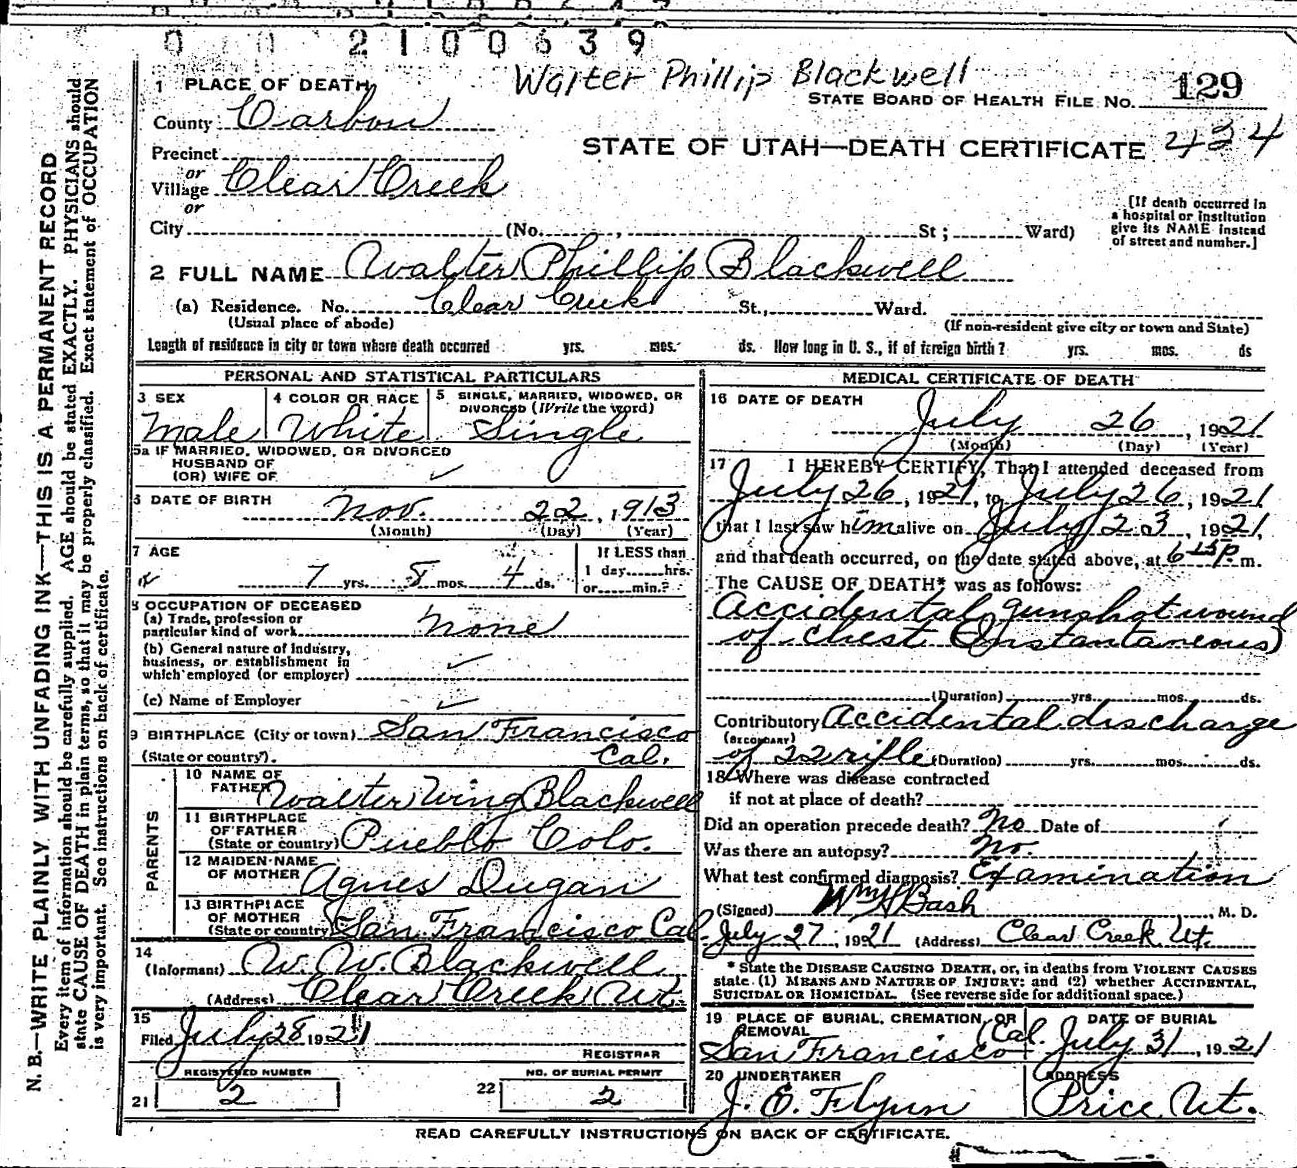 0 0 2 1 0 0 6 3 9
Walter Phillip Blackwell
1 PLACE OF DEATH
STATE BOARD OF HEALTH FILE NO. 129
County Carbon
STATE OF UTAH—DEATH CERTIFICATE 434
Precinct
or
Village Clear Creek
or
City (No. , St ; Ward)
[If death occurred in
a hospital or institution
give its NAME instead
of street and number.]
2 FULL NAME Walter Phillip Blackwell
(a) Residence. No. Clear Creek St., Ward.
(Usual place of abode) (If non-resident give city or town and State)
Length of residence in city or town where death occurred yrs. mos. ds. How long in U. S., if of foreign birth ? yrs. mos. ds
PERSONAL AND STATISTICAL PARTICULARS
3 SEX 4 COLOR OR RACE 5 SINGLE, MARRIED, WIDOWED, OR
DIVORCED (Write the word)
Male White Single
5a IF MARRIED, WIDOWED, OR DIVORCED
HUSBAND OF
(OR) WIFE OF
6 DATE OF BIRTH Nov. 22, 1913
(Month) (Day) (Year)
7 AGE If LESS than
1 day hrs.
7 yrs. 8 mos. 4 ds. or min.?
8 OCCUPATION OF DECEASED
(a) Trade, profession or
particular kind of work None
(b) General nature of industry,
business, or establishment in
which employed (or employer)
(c) Name of Employer
9 BIRTHPLACE (City or town) San Francisco
(State or country). Cal.
PARENTS
10 NAME OF
FATHER Walter Wing Blackwell
11 BIRTHPLACE
OF FATHER
(State or country) Pueblo Colo.
12 MAIDEN NAME
OF MOTHER Agnes Dugan
13 BIRTHPLACE
OF MOTHER
(State or country) San Francisco Cal.
14
(Informant) W. W. Blackwell
(Address) Clear Creek Ut.
15
Filed July 28 1921
REGISTRAR
REGISTERED NUMBER NO. OF BURIAL PERMIT
21 2 22 2
MEDICAL CERTIFICATE OF DEATH
16 DATE OF DEATH
July 26, 1921
(Month) (Day) (Year)
17 I HEREBY CERTIFY, That I attended deceased from
July 26, 1921, to July 26, 1921
that I last saw him alive on July 23, 1921,
and that death occurred, on the date stated above, at 6 15 p. m.
The CAUSE OF DEATH* was as follows:
Accidental gunshot wound
of chest (Instantaneous)
(Duration) yrs. mos. ds.
Contributory Accidental discharge
(SECONDARY)
of 22 rifle (Duration) yrs. mos. ds.
18 Where was disease contracted
if not at place of death?
Did an operation precede death? No Date of
Was there an autopsy? No.
What test confirmed diagnosis? Examination
(Signed) Wm H Bash, M. D.
July 27, 1921 (Address) Clear Creek Ut.
* State the DISEASE CAUSING DEATH, or, in deaths from VIOLENT CAUSES
state (1) MEANS AND NATURE OF INJURY: and (2) whether ACCIDENTAL,
SUICIDAL OR HOMICIDAL. (See reverse side for additional space.)
19 PLACE OF BURIAL, CREMATION, OR
REMOVAL
DATE OF BURIAL
San Francisco Cal. July 31, 1921
20 UNDERTAKER ADDRESS
J. E. Flynn Price Ut.
READ CAREFULLY INSTRUCTIONS ON BACK OF CERTIFICATE.
N. B.—WRITE PLAINLY WITH UNFADING INK—THIS IS A PERMANENT RECORD
Every item of information should be carefully supplied. AGE should be stated EXACTLY. PHYSICIANS should
state CAUSE OF DEATH in plain terms, so that it may be properly classified. Exact statement of OCCUPATION
is very important. See instructions on back of certificate.